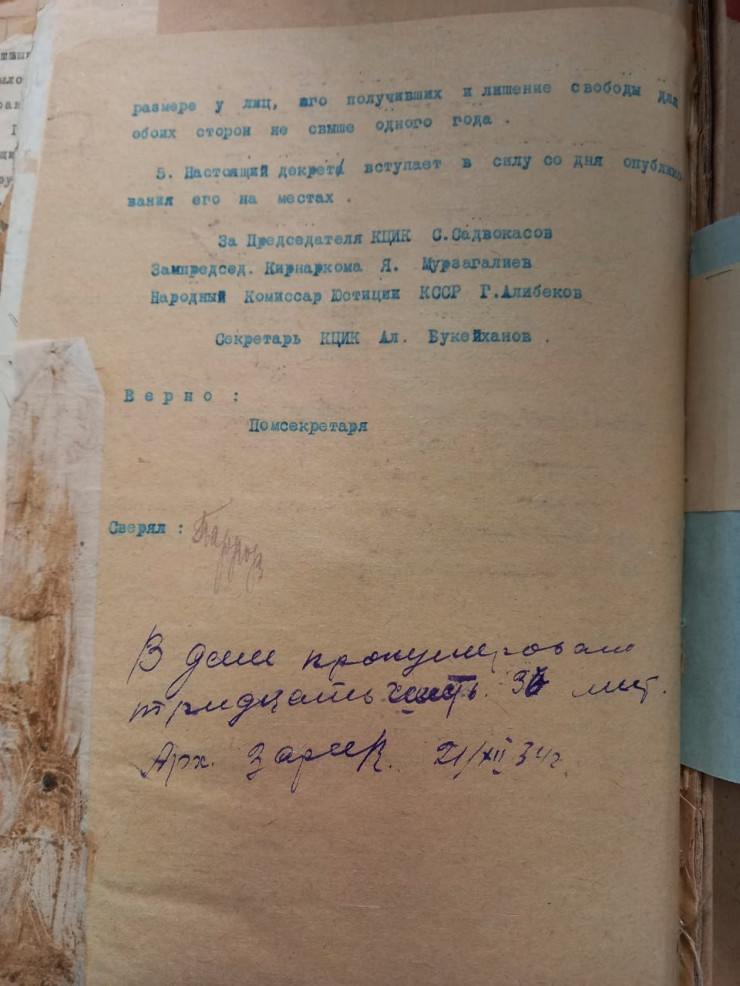 размере у лиц, яго получивших и лишение свободы для
обоих сторон не свыше одного года .
5. Настоящий декрет вступает в силу со дня опублико-
вания его на местах .
За Председателя КЦИК С.Садвокасов
Зампредсед. Кирнаркома Я. Мурзагалиев
Народный Комиссар Юстиции КССР Г.Алибеков
Секретарь КЦИК Ал. Букейханов .
Верно :
Помсекретаря
Сверял :
В деле пронумеровано
тридцать шесть. 36 лист.
Арх. Зарик. 21/XII 34г.